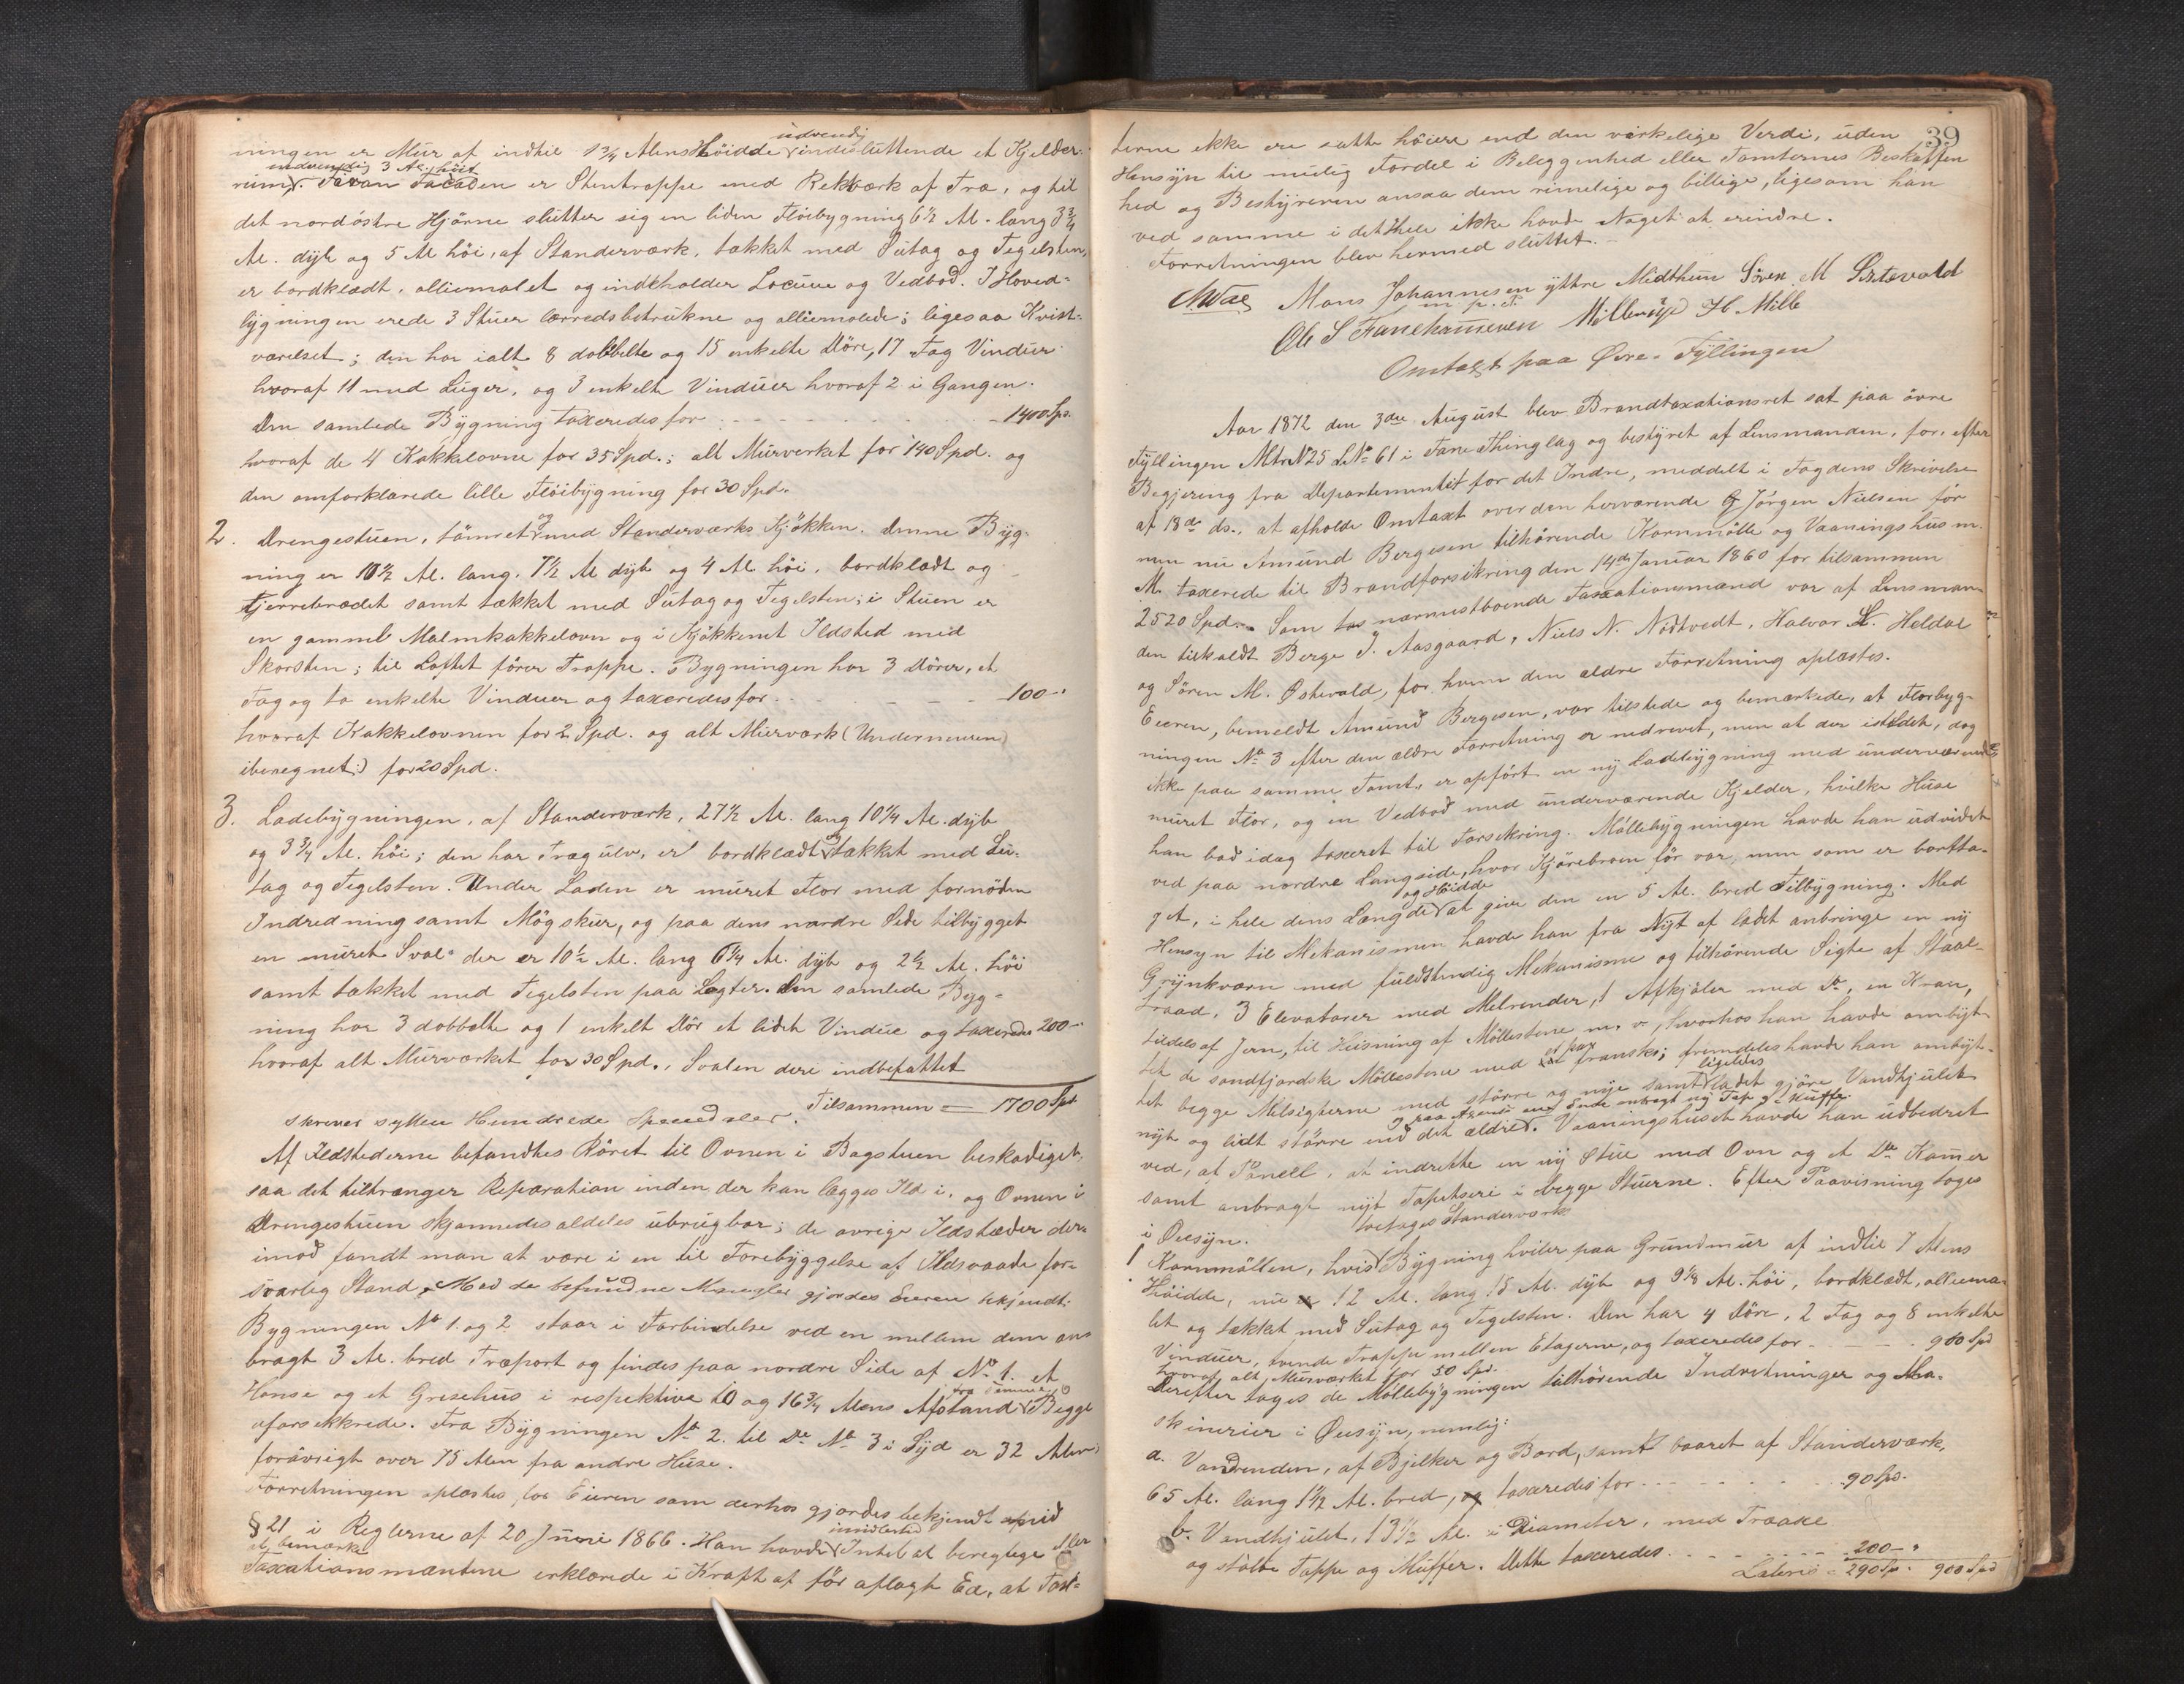 ningen er Mur af indtil 1 3/4 Alens Høidde udvendig indesluttende et Kjelder-
rum, indvendig 3 Al. høit. Foran Facaden er Stentrappe med Rekværk af Træ, og til
det nordøstre Hjørne slutter sig en liden Fløibygning 6 1/2 Al. lang 3 3/4
Al. dyb og 5 Al høi, af Standerværk, tækket med Sutag og Tegelsten,
er bordklædt, olliemalet og indeholder Locum og Vedbod. I Hoved-
bygningen erede 3 Stuer lærredsbetrukne og olliemalede; ligesaa Kvist-
værelset; den har ialt 8 dobbelte og 15 enkelte Døre, 17 Fag Vinduer
hvoraf 11 med Luger, og 3 enkelte Vinduer hvoraf 2 i Gangen.
Den samlede Bygning taxeredes for - - - 1400 Sp.
hvoraf de 4 Kakkelovne for 35 Spd.; alt Murverket for 140 Spd. og
den omforklarede lille Fløibygning for 30 Spd.
2. Drengestuen, tømret og med Standerværks Kjøkken. Denne Byg-
ning er 10 1/2 Al. lang, 7 1/2 Al dyb og 4 Al høi, bordklædt og
tjerrebrædet samt tækket med Sutag og Tegelsten; i Stuen er
en gammel Malmkakkelovn og i Kjøkkenet Ildsted med
Skorsten; til Loftet fører Trappe. Bygningen har 3 Dører, et
Fag og to enkelte Vinduer og taxeredes for - - - 100 -
hvoraf Kakkelovnen for 2 Spd. og alt Murværk (Undermuren
iberegnet) for 20 Spd.
3. Ladebygningen, af Standerværk, 27 1/2 Al. lang 10 1/4 Al. dyb
og 3 3/4 Al. høi; den har Trægulv, er bordklædt og tækket med Su-
tag og Tegelsten. Under Laden er muret Flor med fornøden
Indredning samt Møgskur, og paa dens nordre Side tilbygget
en muret Sval der er 10 1/2 Al. lang 6 1/4 Al. dyb og 2 1/2 Al. høi
samt tækket med Tegelsten paa Legter. Den samlede Byg-
ning har 3 dobbelte og 1 enkelt Dør et lidet Vindue og taxeredes 200 -
hvoraf alt Murværket for 30 Spd., Svalen deri indbefattet
Tilsammen = 1700 Spd
skriver sytten Hundrede Speciedaler.
Af Ildstederne befandtes Røret til Ovnen i Bagstuen beskadiget,
saa det tiltrænger Reparation inden der kan lægges Ild i, og Ovnen i
Drengestuen skjønnedes aldeles ubrugbar; de øvrige Ildstæder der-
imod fandt man at være i en til Forebyggelse af Ildsvaade for-
svarlig Stand. Med de befundne Mangler gjordes Eieren bekjendt.
Bygningen No 1 og 2 staar i Forbindelse ved en mellem dem an-
bragt 3 Al. bred Træport og findes paa nordre Side af No 1. et
Hønse og et Grisehus i respektive 10 og 16 3/4 Alens Afstand fra samme Begge
uforsikkrede. Fra Bygningen No 2. til Do No 3 i Syd er 32 Alen,
forøvrigt over 75 Alen fra andre Huse.
Forretningen oplæstes for Eieren som derhos gjordes bekjendt med
§ 21 i Reglerne af 20 Juni 1866. Han havde imidlertid Intet at berigtige eller
at bemærke
Taxationsmændene erklærede i Kraft af før aflagt Ed, at Taxt-
39
terne ikke ere satte høiere end den virkelige Verdi, uden
Hensyn til mulig Fordel i Beleggenhed eller Tomternes Beskaffen
hed og Bestyreren ansaa dem rimelige og billige, ligesom han
ved samme i det Hele ikke havde Noget at erindre.
Forretningen blev hermed sluttet.
Mons Johannesen yttre Midthun Sören M Östevold
m. p. F.
Omtaxt paa Øvre-Fyllingen
Aar 1872 den 3die August blev Brandtaxationsret sat paa øvre
Fyllingen Mtr No 25 L No 61 i Fane Thinglag og bestyret af Lensmanden, for, efter
Begjering fra Departementet for det Indre, meddelt i Fogdens Skrivelse
af 18de ds., at afholde Omtaxt over den herværende Jørgen Nielsen før
men nu Amund Bergesen tilhørende Kornmølle og Vaaningshus m.
M. taxerede til Brandforsikring den 14de Januar 1860 for tilsammen
2520 Spd. Som nærmestboende Taxationsmænd var af Lensman-
den tilkaldt Berge J. Aasgaard, Niels N. Nødtvedt, Halvor H. Heldal
og Sören M. Østevold, for hvem den ældre Forretning oplæstes.
Eieren, bemeldt Amund Bergesen, var tilstede og bemærkede, at Florbyg-
ningen No 3 efter den ældre Forretning er nedrevet, men at der istedet, dog
ikke paa samme Tomt, er opført en ny Ladebygning med underværende
muret Flor, og en Vedbod med underværende Kjelder, hvilke Huse
han bad idag taxeret til Forsikring. Møllebygningen havde han udvidet
ved paa nordre Langside, hvor Kjørebroen før var, men som er bortta-
get, i hele dens Længde og Høidde at give den en 5 Al. bred Tilbygning. Med
Hensyn til Mekanismen havde han fra Nyt af ladet anbringe en ny
Grynkværn med fuldstendig Mekanisme og tilhørende Sigte af Staal-
traad, 3 Elevatorer med Melrender, 1 Afkjøler med Do, en Kran,
tildels af Jern, til Heisning af Møllestene m. v., hvorhos han havde ombyt-
tet de søndfjordske Møllestene med et par franske; fremdeles havde han ombyt-
tet begge Melsigterne med større og nye samt ligeledes ladet gjøre Vandhjulet
nyt og lidt større end det ældre. og paa Axen en Ende anbragt ny Tap og Muffe. Vaaningshuset havde han udbedret
ved, af Panell, at indrette en ny Stue med Ovn og et Do Kammer
samt anbragt nyt Tapetseri i begge Stuerne. Efter Paavisning toges
i Øiesyn.
1. Kornmøllen, hvis toetages Standerværks Bygning hviler paa Grundmur af indtil 7 Alens
Høidde, nu 12 Al. lang 15 Al. dyb og 9 1/8 Al. høi, bordklædt, olliema-
let og tækket med Sutag og Tegelsten. Den har 4 Døre, 2 Fag og 8 enkelte
Vinduer, tvende Trappe mellem Etagerne, og taxeredes for - - - 900 Spd
hvoraf alt Murværket for 50 Spd.
Derefter toges de Møllebygningen tilhørende Indretninger og Ma-
skinerier i Øiesyn, nemlig:
a. Vandrenden, af Bjelker og Bord, samt baaret af Standerværk,
65 Al. lang 1 1/2 Al. bred, taxeredes for - - - 90 Spd.
b. Vandhjulet, 13 1/2 Al. i Diameter, med Træaxe
og støbte Tappe og Muffer. Dette taxeredes - - - 200 - "
Lateris = 290 Sp. 900 Spd